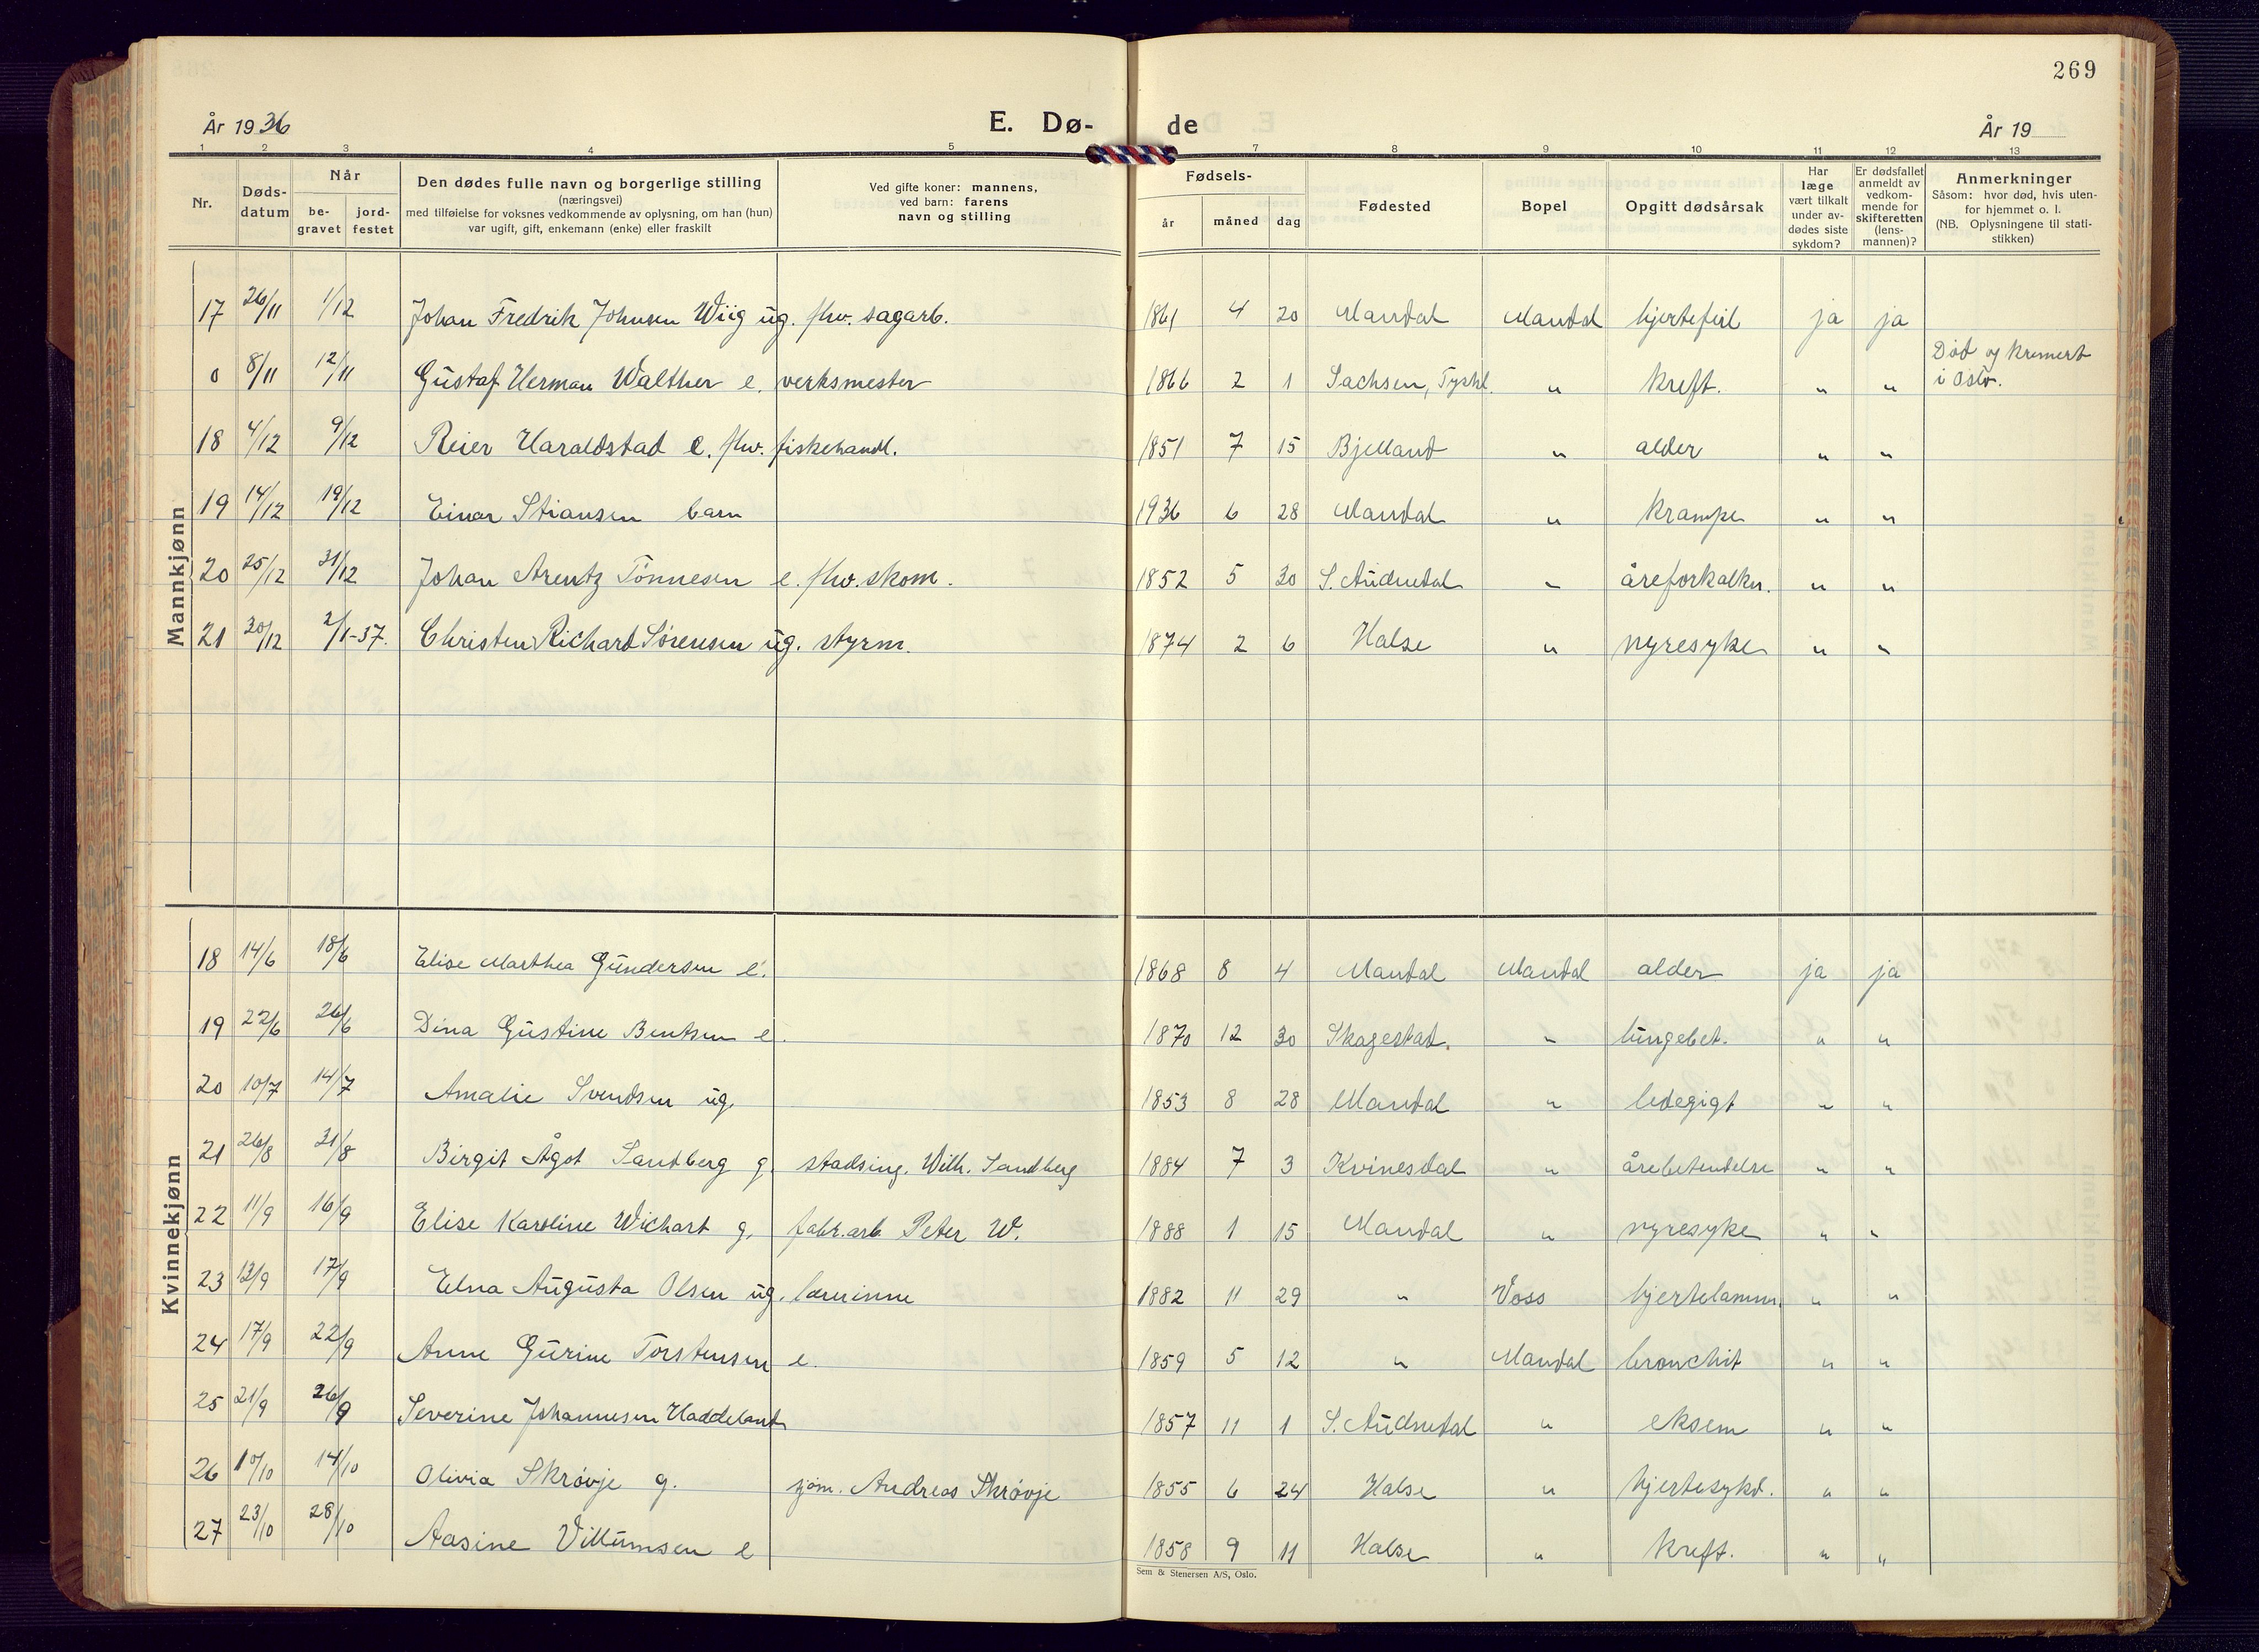 269
År 1936
E. Dø-
de
År 19
1 2 3 4 5 7 8 9 10 11 12 13
Nr.
Døds-
datum
Når
be-
gravet
jord-
festet
Den dødes fulle navn og borgerlige stilling
(næringsvei)
med tilføielse for voksnes vedkommende av oplysning, om han (hun)
var ugift, gift, enkemann (enke) eller fraskilt
Ved gifte koner: mannens,
ved barn: farens
navn og stilling
Fødsels-
år måned dag
Fødested
Bopel
Opgitt dødsårsak
Har
læge
vært tilkalt
under av-
dødes siste
sykdom?
Er dødsfallet
anmeldt av
vedkom-
mende for
skifteretten
(lens-
mannen)?
Anmerkninger
Såsom: hvor død, hvis uten-
for hjemmet o. l.
(NB. Oplysningene til stati-
stikken)
Mannkjønn
17 26/11 1/12 Johan Fredrik Johnsen Wiig ug. fhv. sagarb. 1861 4 20 Mandal Mandal hjertefeil ja ja
0 8/11 12/11 Gustaf Herman Walther e. verksmester 1866 2 1 Sachsen, Tyskl. " kreft. " " Død og kremert
i Oslo.
18 4/12 9/12 Reier Haraldstad e. fhv. fiskehandl. 1851 7 15 Bjelland " alder " "
19 14/12 19/12 Einar Stiansen barn 1936 6 28 Mandal " krampe " "
20 25/12 31/12 Johan Arentz Tønnesen e. fhv. skom. 1852 5 30 S. Audnedal " åreforkalkn. " "
21 30/12 2/1-37. Christen Richard Sørensen ug. styrm. 1874 2 6 Halse " nyresyke " "
Kvinnekjønn
18 14/6 18/6 Elise Marthea Gundersen e. 1868 8 4 Mandal Mandal alder ja ja
19 22/6 26/6 Dina Gustine Bentsen e. 1870 12 30 Skagestad. " lungebet. " "
20 10/7 14/7 Amalie Svendsen ug. 1853 8 28 Mandal " ledegigt " "
21 26/8 31/8 Birgit Ågot Sandberg g. stadsing. Wilh. Sandberg 1884 7 3 Kvinesdal " årebetendelse " "
22 11/9 16/9 Elise Karoline Wichart g. fabr.arb. Peter W. 1888 1 15 Mandal " nyresyke " "
23 13/9 17/9 Edna Augusta Olsen ug. lærerinne 1882 11 29 " Voss hjertelamm. " "
24 17/9 22/9 Anne Gurine Torstensen e. 1859 5 12 " Mandal bronchit " "
25 21/9 26/9 Severine Johannesen Haddeland 1857 11 1 S. Audnedal " eksem " "
26 10/10 14/10 Olivia Skrøvje g. sjøm. Andreas Skrøvje 1855 6 24 Halse " hjertesykd. " "
27 23/10 28/10 Aasine Villumsen e 1858 9 11 Halse " kreft. " "
Sem & Stenersen A/S, Oslo.